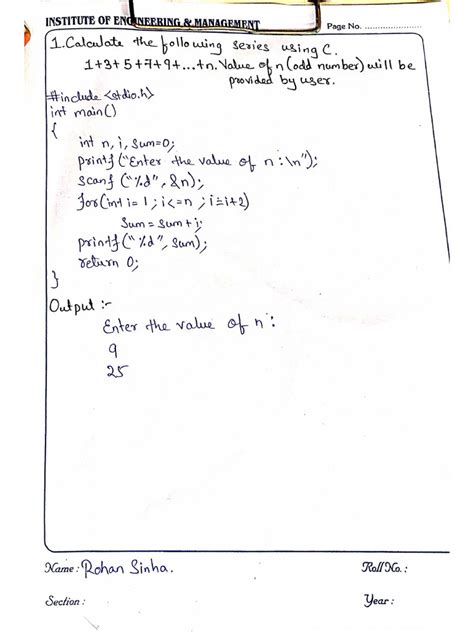 INSTITUTE OF ENGINEERING & MANAGEMENT
Page No. ......................
1.Calculate the following series using C.
1+3+5+7+9+...+n. Value of n (odd number) will be
provided by user.
#include <stdio.h>
int main()
{
int n, i, sum=0;
printf("Enter the value of n:\n");
scanf ("%d", &n);
for(int i=1; i<=n ; i=i+2)
sum = sum+i;
printf("%d", sum);
return 0;
}
Output :-
Enter the value of n:
9
25
Name: Rohan Sinha.
Roll No. :
Section :
Year :